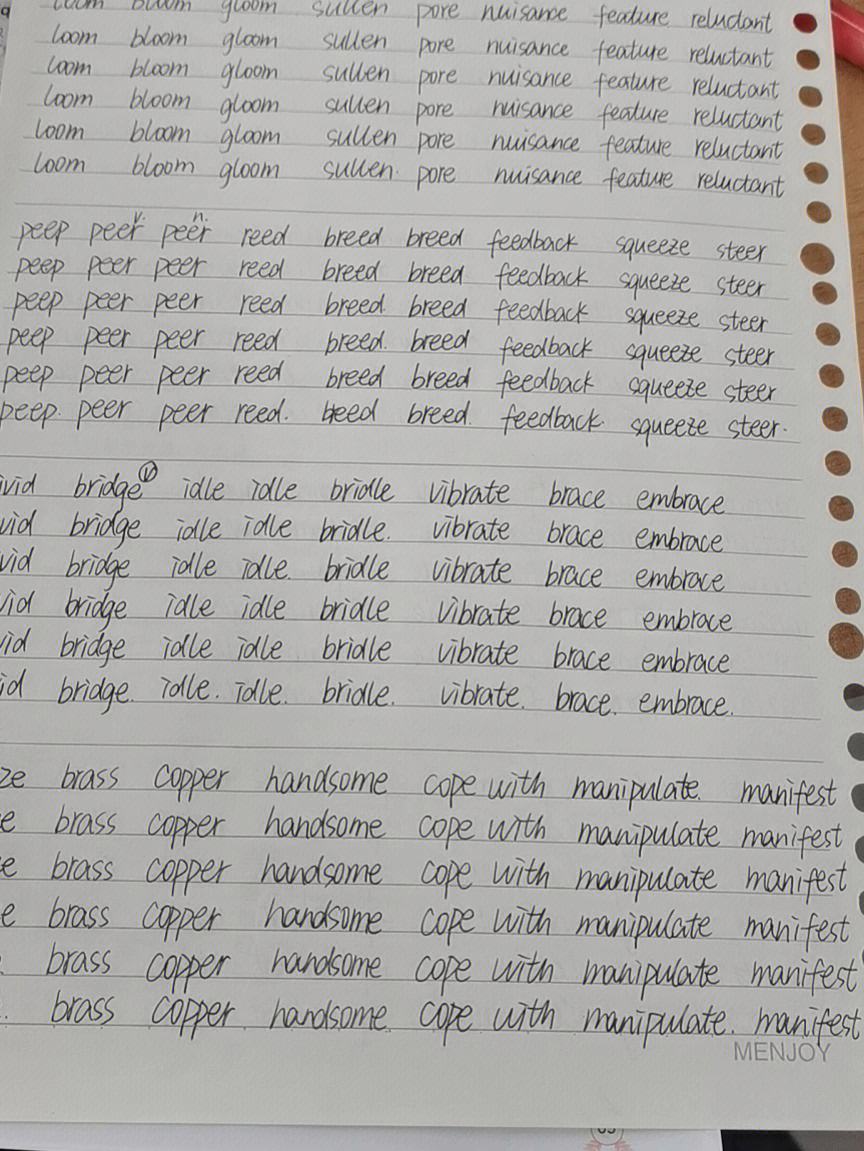 loom bloom gloom sullen pore nuisance feature reluctant
loom bloom gloom sullen pore nuisance feature reluctant
loom bloom gloom sullen pore nuisance feature reluctant
loom bloom gloom sullen pore nuisance feature reluctant
loom bloom gloom sullen pore nuisance feature reluctant
loom bloom gloom sullen. pore nuisance feature reluctant
v. n.
peep peer peer reed breed breed feedback squeeze steer
peep peer peer reed breed breed feedback squeeze steer
peep peer peer reed breed. breed feedback squeeze steer
peep peer peer reed breed. breed feedback squeeze steer
peep peer peer reed breed breed feedback squeeze steer
peep. peer peer reed. breed breed. feedback. squeeze steer.
ivid bridge idle idle bridle vibrate brace embrace
vid bridge idle idle bridle. vibrate brace embrace
vid bridge idle idle. bridle vibrate brace embrace
vid bridge idle idle bridle vibrate brace embrace
vid bridge idle idle bridle vibrate brace embrace
id bridge. idle. idle. bridle. vibrate. brace. embrace.
ze brass copper handsome cope with manipulate. manifest
e brass copper handsome cope with manipulate manifest
e brass copper handsome cope with manipulate manifest
e brass copper handsome cope with manipulate manifest
brass copper handsome cope with manipulate manifest
brass copper. handsome. cope with manipulate. manifest
MENJOY